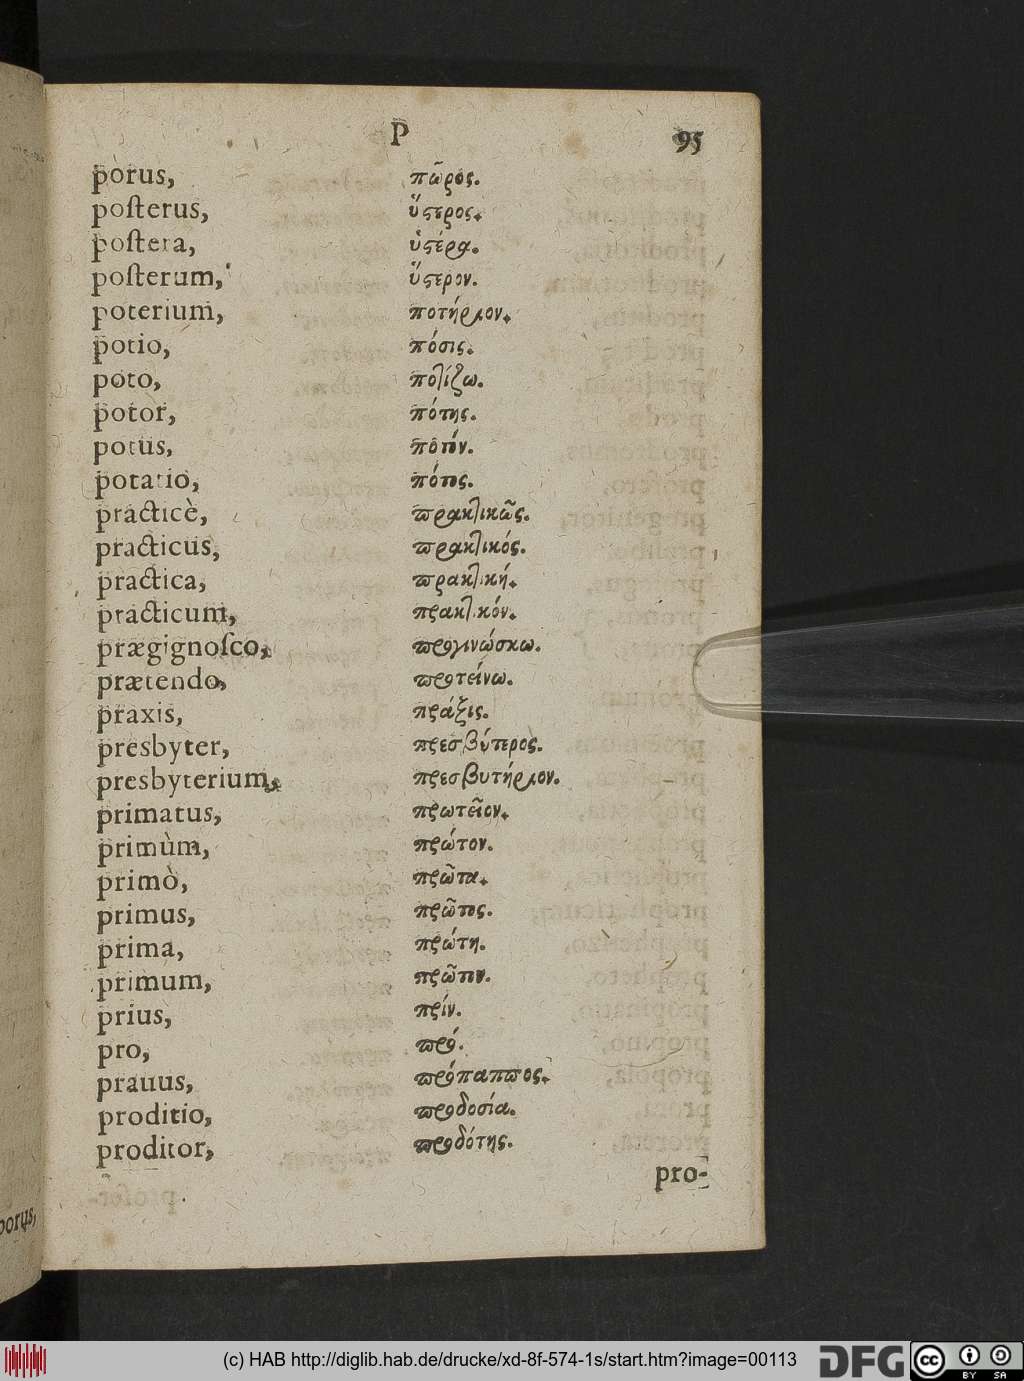 P 95
porus, πῶρος.
poſterus, ὕςερος.
poſtera, ὑςέρα.
poſterum, ὕςερον.
poterium, ποτήριον.
potio, πόσις.
poto, ποτίζω.
potor, πότης.
potus, ποτόν.
potatio, πότος.
practicè, πρακτικῶς.
practicus, πρακτικός.
practica, πρακτική.
practicum, πρακτικόν.
prægignoſco, προγινώσκω.
prætendo, προτείνω.
praxis, πράξις.
presbyter, πρεσβύτερος.
presbyterium, πρεσβυτήριον.
primatus, πρωτεῖον.
primùm, πρώτον.
primò, πρῶτα.
primus, πρῶτος.
prima, πρώτη.
primum, πρῶτον.
prius, πρίν.
pro, πρό.
prauus, πρόπαππος.
proditio, προδοσία.
proditor, προδότης.
pro-
porus,
(c) HAB http://diglib.hab.de/drucke/xd-8f-574-1s/start.htm?image=00113
DFG
cc BY SA